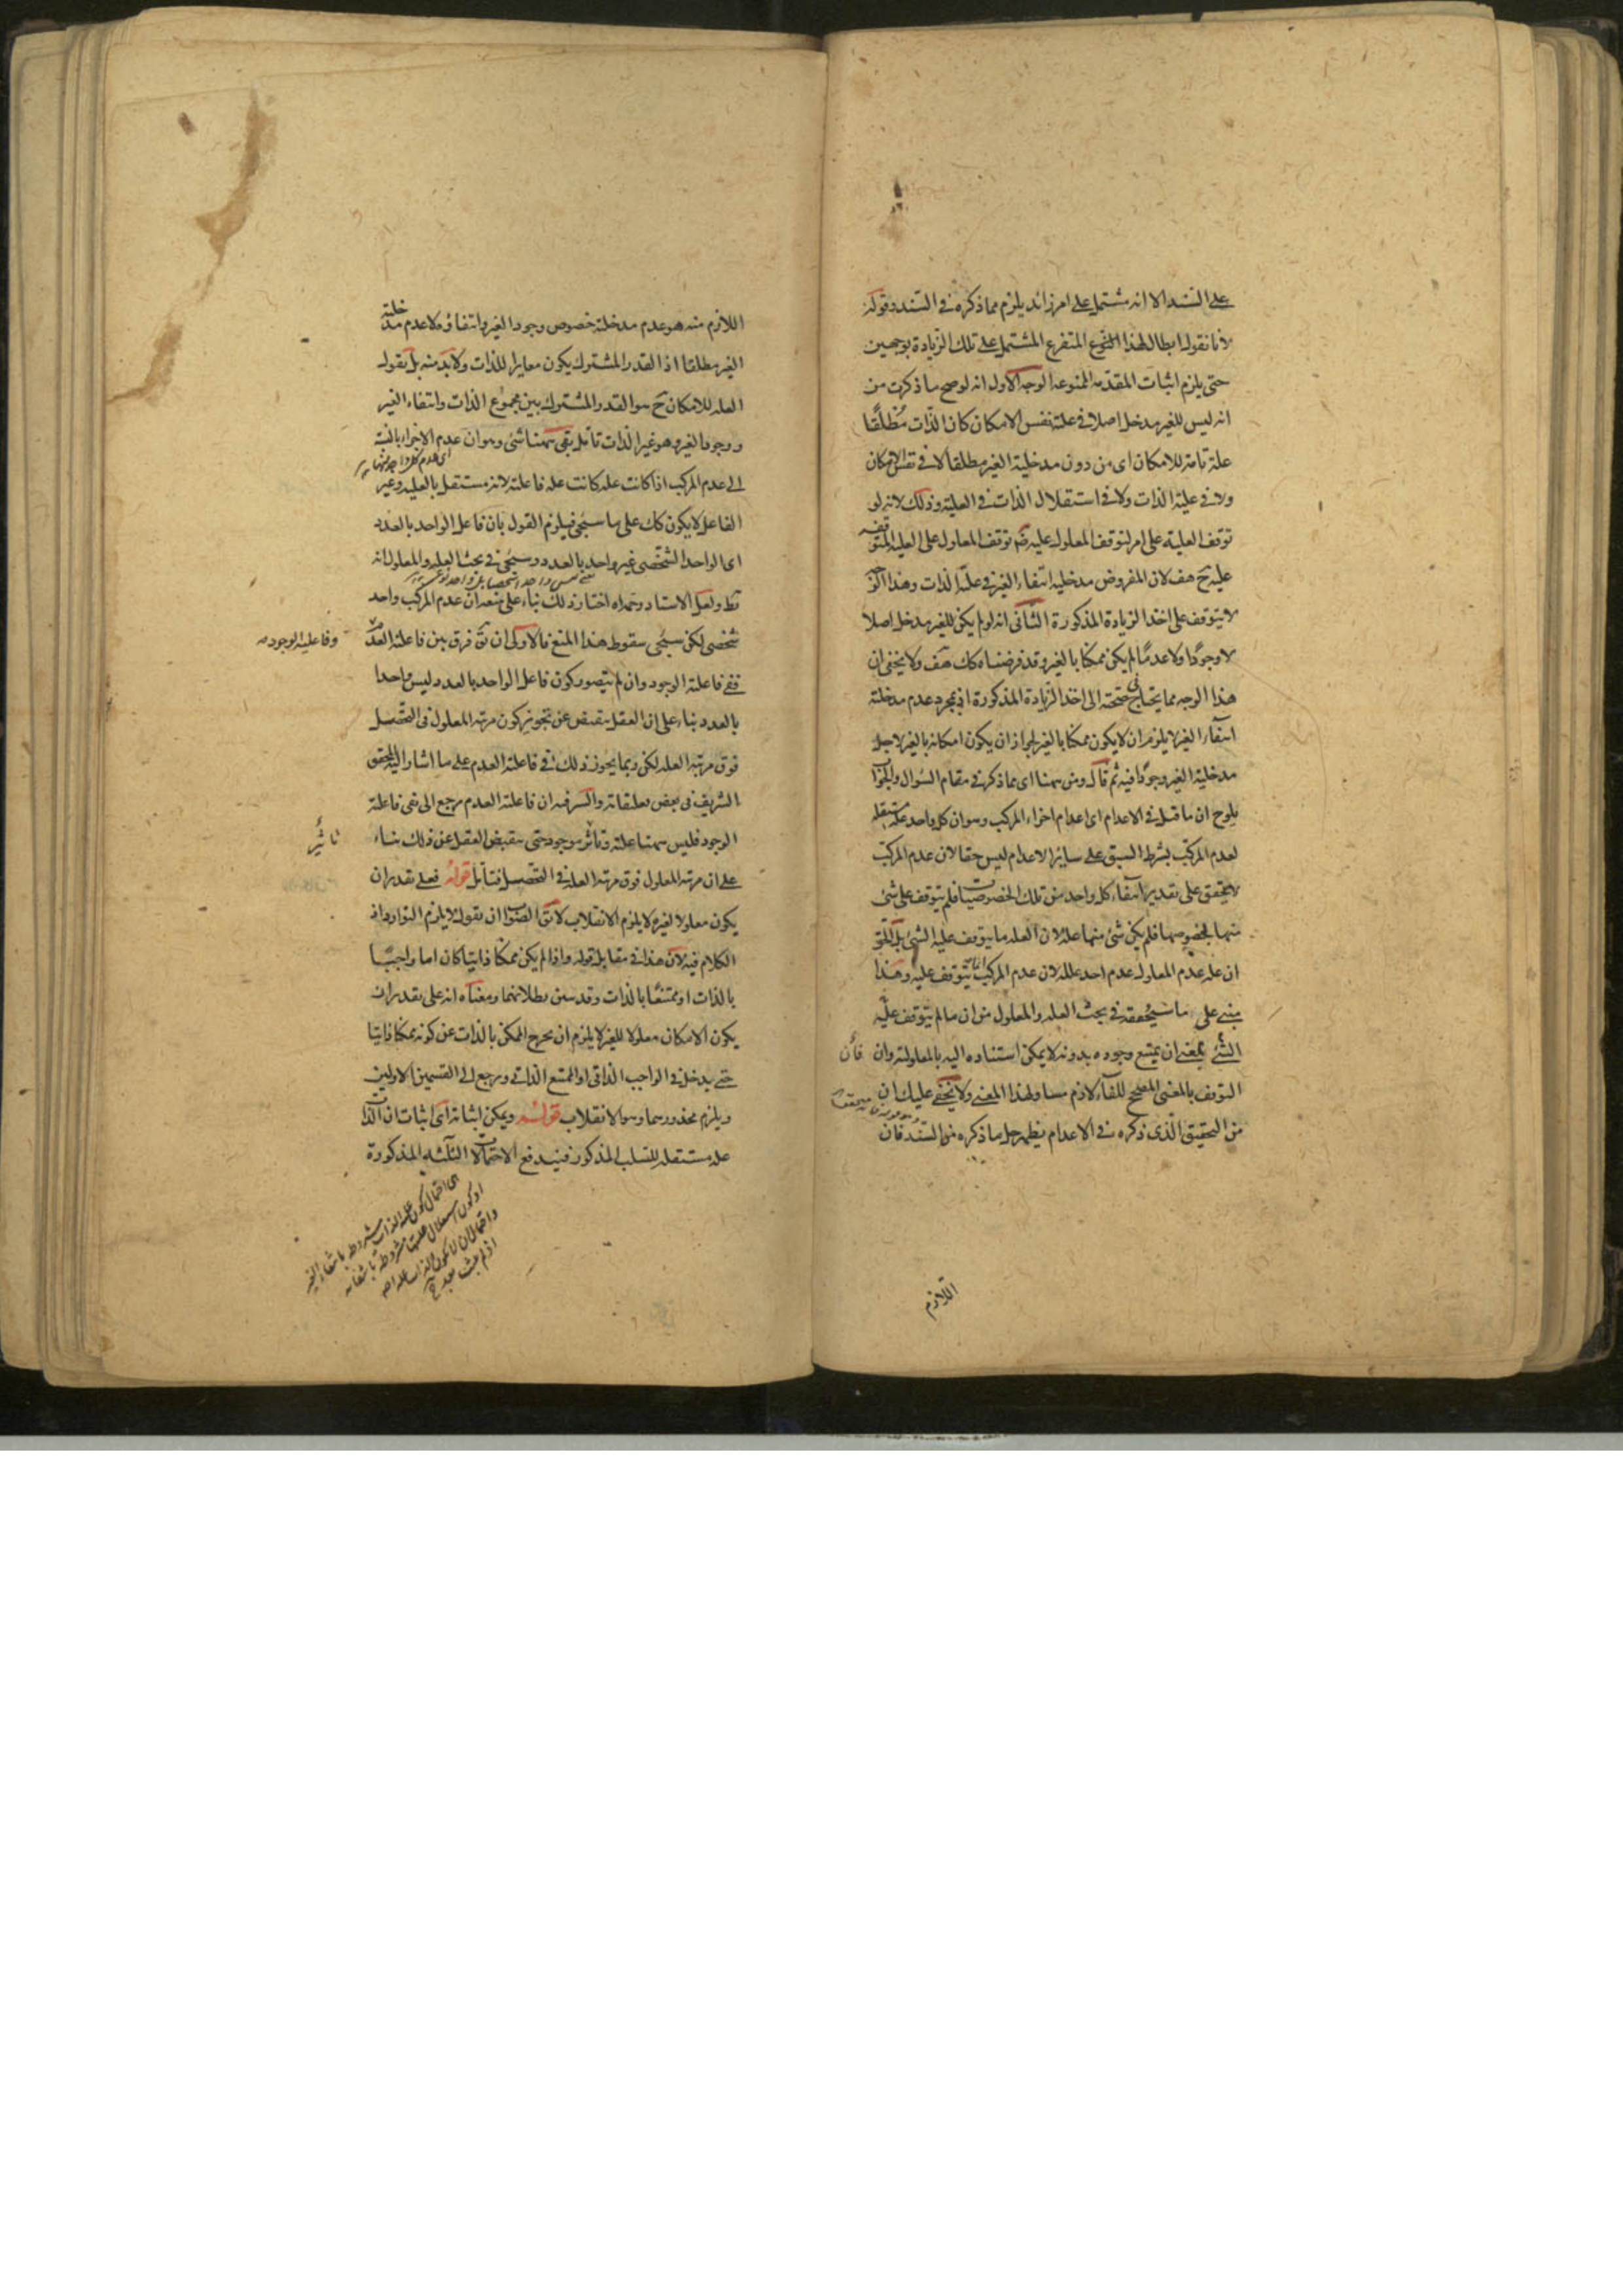 على السند الا انه مشتمل على امر زائد يلزم مما ذكره فى السند وقوله
لانا نقول ابطال لهذا المنوع المتفرع المشتمل على تلك الزيادة بوجهين
حتى يلزم اثبات المقدمه الممنوعه الوجه الاول انه لو صح ما ذكرت من
انه ليس للغير مدخل اصلا فى علته نفس الامكان كان الذات مطلقا
علة تامه للامكان اى من دون مدخلية الغير مطلقا لا فى نفس الامكان
ولا فى علية الذات ولا فى استقلال الذات فى العلية وذلك لانه لو
توقف العلية على امر لتوقف المعلول عليه ضرورة توقف المعلول على العلية المتوقفه
عليه ح هف لان المفروض مدخلية انتفاء الغير فى علة الذات وهذا الوجه
لا يتوقف على اخذ الزيادة المذكورة الثانى انه لو لم يكن للغير مدخل اصلا
لا وجودا ولا عدما لم يكن ممكنا بالغير وقد فرضناه كك هف ولا يخفى ان
هذا الوجه مما يحتاج فى صحته الى اخذ الزيادة المذكورة اذ بمجرد عدم مدخلية
انتفاء الغير لا يلزم ان لا يكون ممكنا بالغير لجواز ان يكون امكانه بالغير لاجل
مدخلية الغير وجودا فيه ثم قال ومن ههنا اى مما ذكر فى مقام السؤال والجواب
يلوح ان ما قيل فى الاعدام اى اعدام اجزاء المركب وهو ان كل واحد علة مستقله
لعدم المركب بشرط السبق على سائر الاعدام ليس حقا لان عدم المركب
لا يتحقق على تقدير انتفاء كل واحد من تلك الخصوصيات فلم يتوقف على شئ
منها بخصوصها فلم يكن شئ منها علة لان العلة ما يتوقف عليه الشئ بل الحق
ان علة عدم المعلول عدم احد علله لان عدم المركب انما يتوقف عليه وهذا
مبنى على ما سيحققه فى بحث العلة والمعلول من ان ما لم يتوقف عليه
الشئ بمعنى ان يمتنع وجوده بدونه لا يمكن استناده اليه بالمعلولية وان
فأن
التوقف بالمعنى المصحح للفاء لازم مساو لهذا المعنى ولا يخفى عليك ان
من التحقيق الذى ذكره فى الاعدام يظهر حل ما ذكره من السند فان
اللازم
اللازم منه هو عدم مدخلية خصوص وجود الغير وانتفاؤه لا عدم مدخلية
الغير مطلقا اذ القدر المشترك يكون مغايرا للذات ولا بد منه بل نقول
العلة للامكان ح هو القدر المشترك بين مجموع الذات وانتفاء الغير
ووجود الغير وهو غير الذات تأمل بقى ههنا شئ وهو ان عدم الاجزاء بالنسبة
الى عدم المركب اذا كانت علة كانت علة فاعلية لانه مستقل بالعلية وغير
الفاعل لا يكون كك على ما سيجئ فيلزم القول بان فاعل الواحد بالعدد
اى الواحد الشخصى غير واحد بالعدد وسيجئ فى بحث العلة والمعلول انه
بط ولعل الاستاد اختار ذلك بناء على منعه ان عدم المركب واحد
شخصى لكن سيجئ سقوط هذا المنع فالاولى ان يق فرق بين فاعلية العدم
وفاعلية الوجود
ففى فاعلية الوجود وان لم يتصور كون فاعل الواحد بالعدد ليس واحدا
بالعدد بناء على ان العقل ينقبض عن تجويز كون مرتبة المعلول فى التحصل
فوق مرتبة العلة لكن ربما يجوز ذلك فى فاعلية العدم على ما اشار اليه المحقق
الشريف فى بعض تعليقاته والسر فيه ان فاعلية العدم يرجع الى نفى فاعلية
الوجود فليس ههنا علية وتاثر موجود حتى ينقبض العقل عن ذلك بناء
تأثير
على ان مرتبة المعلول فوق مرتبة العلة فى التحصيل فتأمل قوله فعلى تقدير ان
يكون معلولا لغيره لا يلزم الانقلاب لا يق الصواب ان نقول لا يلزم التوارد اذ
الكلام فيه لان هذا فى مقابلة قوله واذا لم يكن ممكنا ذاتيا كان اما واجبا
بالذات او ممتنعا بالذات وقد بين بطلانهما ومعناه انه على تقدير ان
يكون الامكان معلولا للغير لا يلزم ان يخرج الممكن بالذات عن كونه ممكنا ذاتيا
حتى يدخل فى الواجب الذاتى او الممتنع الذاتى ويرجع الى القسمين الاولين
ويلزم محذورهما وهو الانقلاب قوله ويمكن اثباته اى اثبات ان الذات
علة مستقلة للسلب المذكور فيندفع الاحتمالات الثلثه المذكورة
اى احتمال كون علية الذات مشروطه بانتفاء الغير
او كون استقلال علتها مشروطة بانتفائه